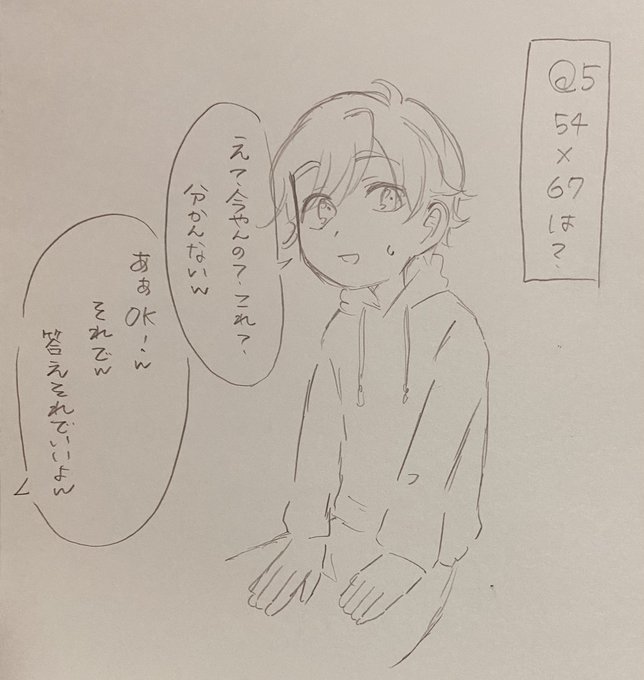 Q5
54×67は?
えて、今やんの?、これ?、
分かんないw
あぁOK!w
それでw
答えそれでいいよw